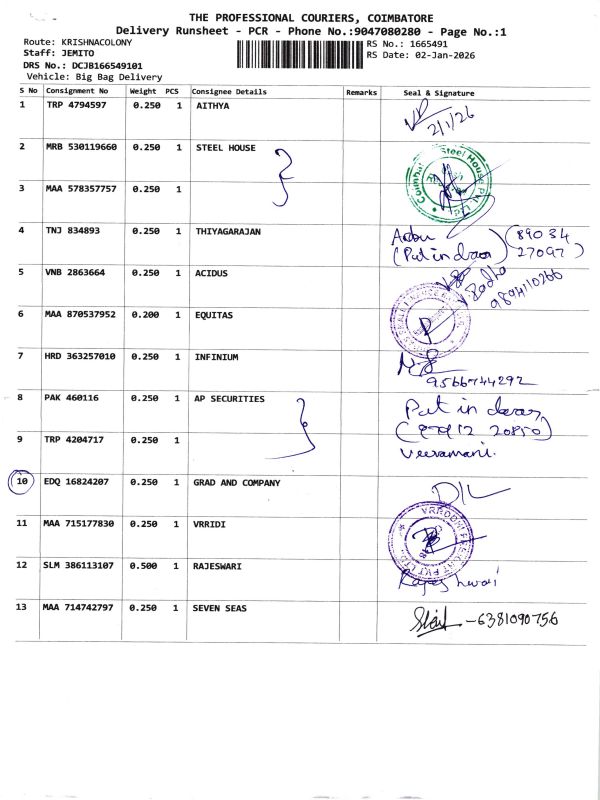 THE PROFESSIONAL COURIERS, COIMBATORE
Delivery Runsheet - PCR - Phone No.:9047080280 - Page No.:1
Route: KRISHNACOLONY
Staff: JEMITO
DRS No.: DCJB166549101
Vehicle: Big Bag Delivery
RS No.: 1665491
RS Date: 02-Jan-2026
S No Consignment No Weight PCS Consignee Details Remarks Seal & Signature
1 TRP 4794597 0.250 1 AITHYA
2/1/26
2 MRB 530119660 0.250 1 STEEL HOUSE
Steel House Pvt Ltd
3 MAA 578357757 0.250 1
4 TNJ 834893 0.250 1 THIYAGARAJAN
(Put in door) (89034
27097)
5 VNB 2863664 0.250 1 ACIDUS
9894110266
6 MAA 870537952 0.200 1 EQUITAS
7 HRD 363257010 0.250 1 INFINIUM
9566744292
8 PAK 460116 0.250 1 AP SECURITIES
Put in door,
9 TRP 4204717 0.250 1
Veeramani.
10 EDQ 16824207 0.250 1 GRAD AND COMPANY
D/L
11 MAA 715177830 0.250 1 VRRIDI
12 SLM 386113107 0.500 1 RAJESWARI
Rajeshwari
13 MAA 714742797 0.250 1 SEVEN SEAS
-6381090756